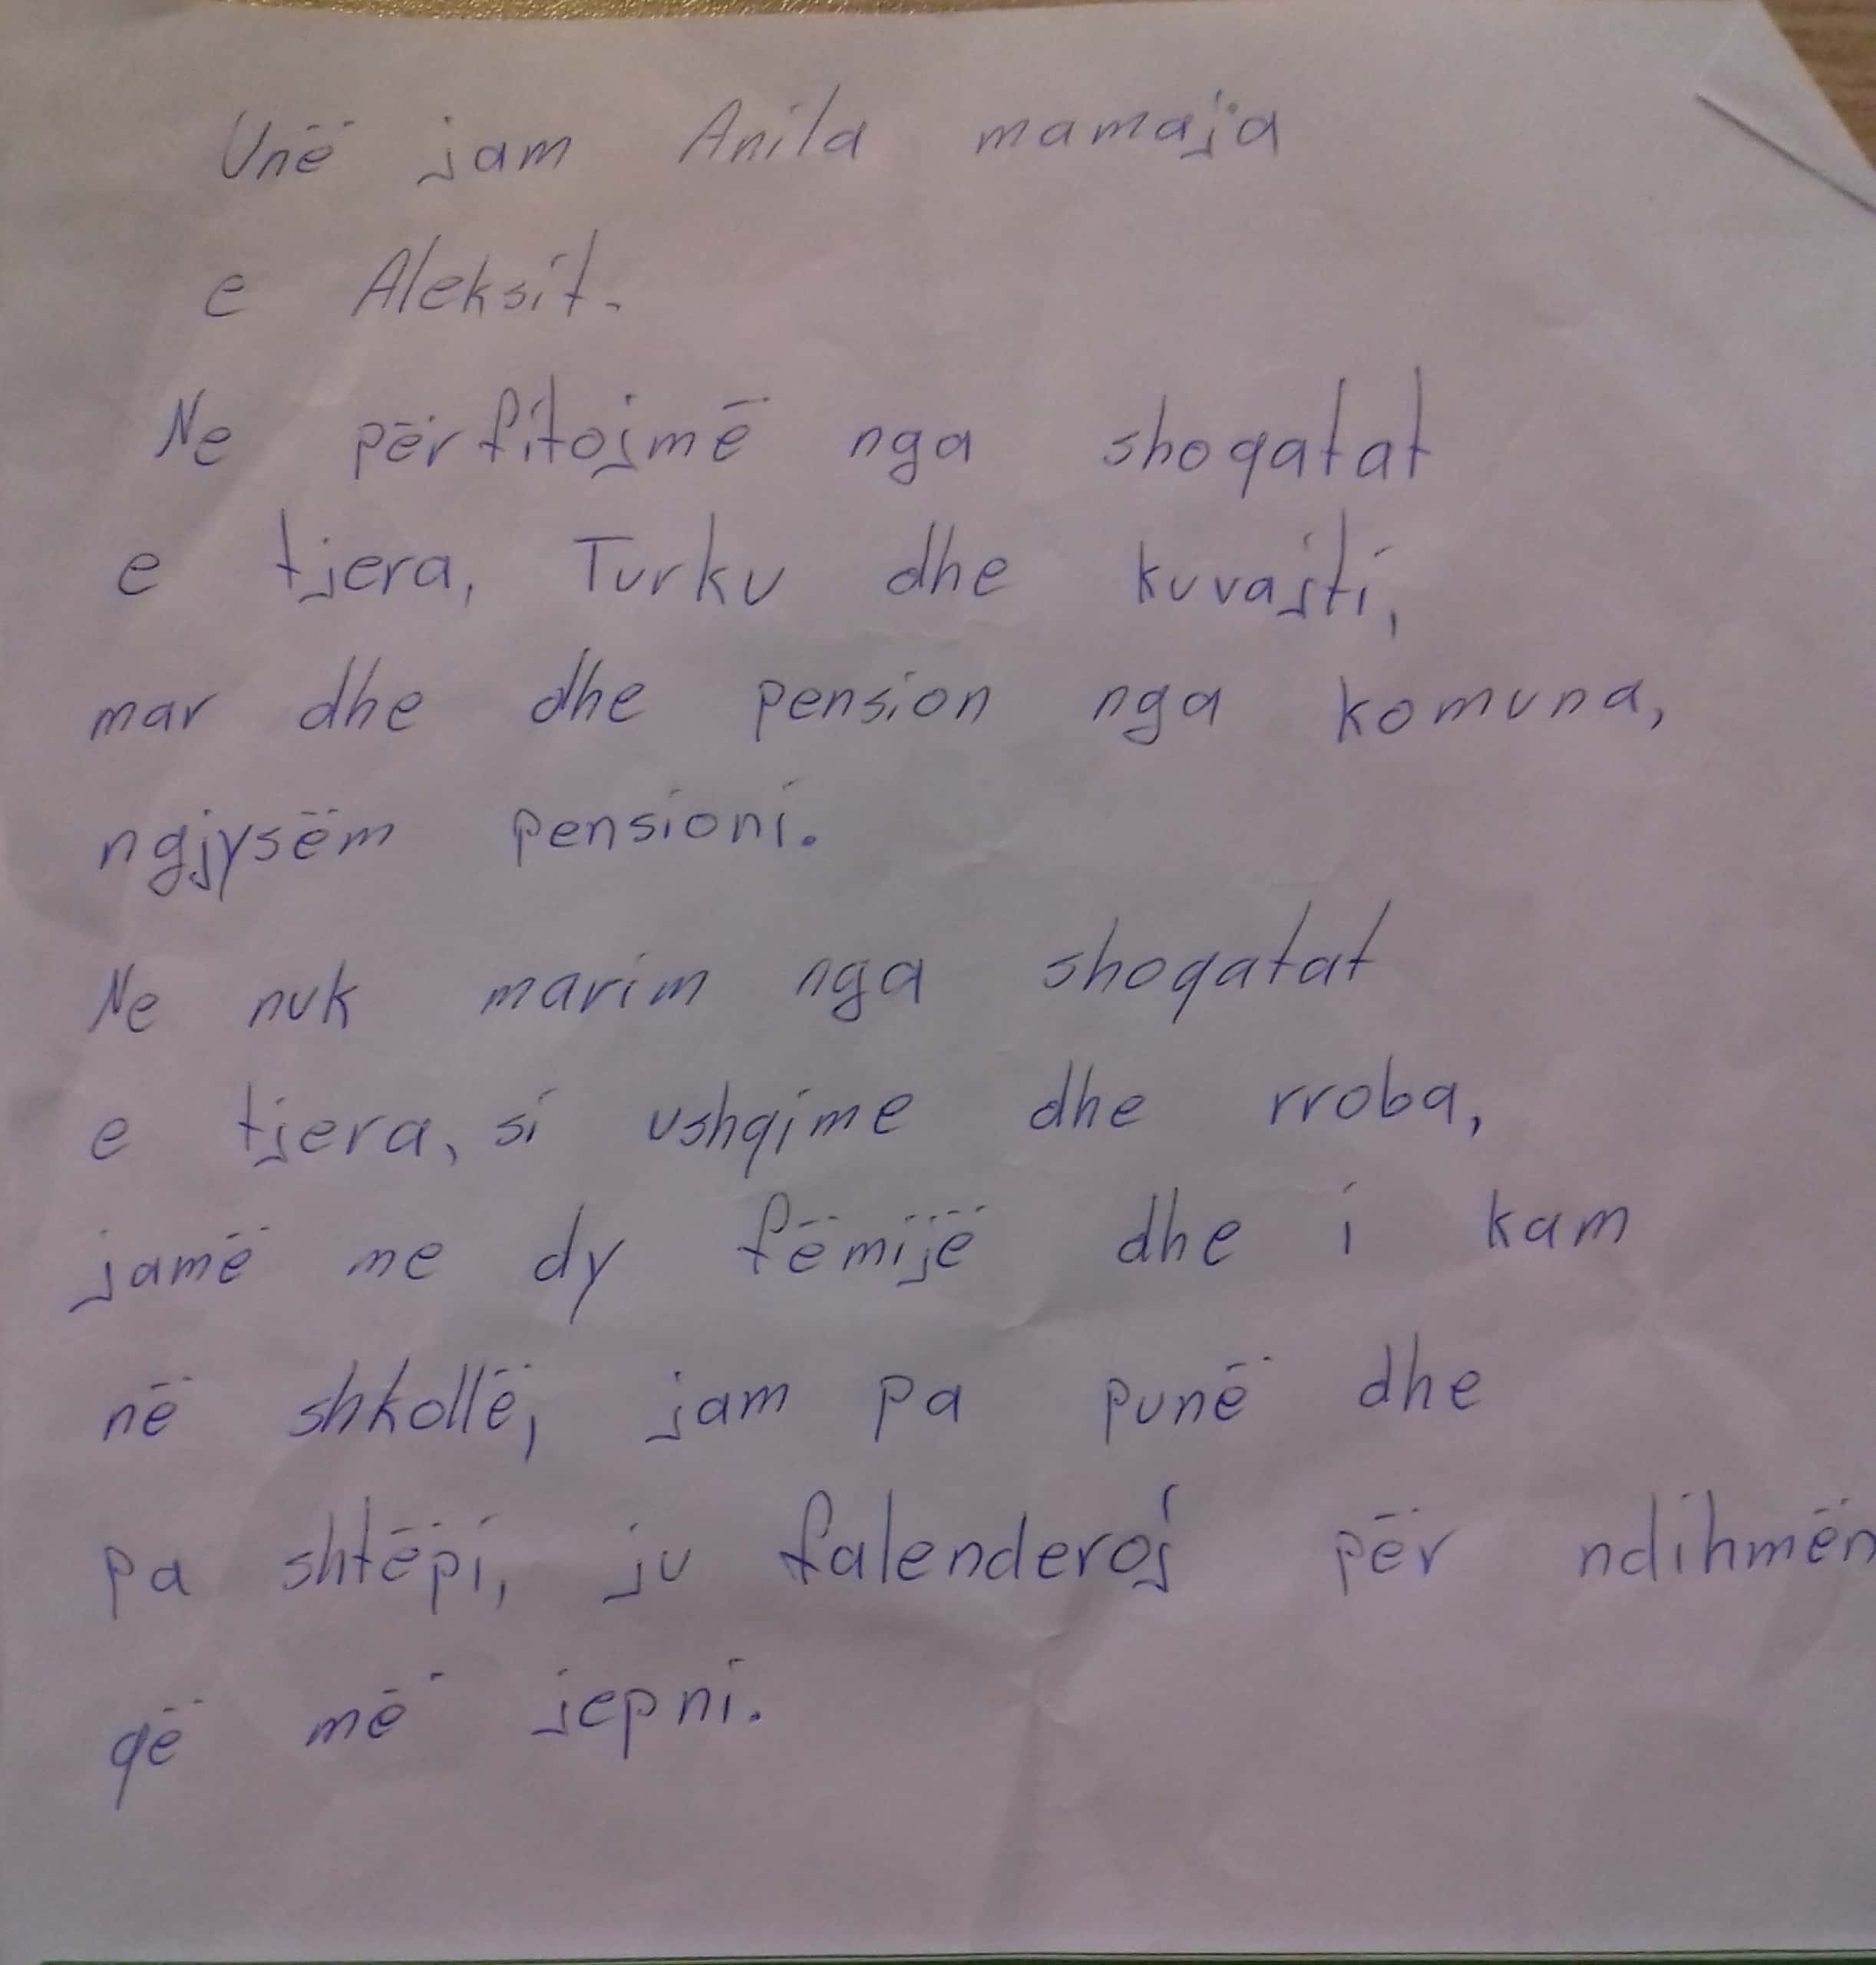 Unë jam Anila mamaja
e Aleksit.
Ne përfitojmë nga shoqatat
e tjera, Turku dhe kuvajti,
mar dhe dhe pension nga komuna,
ngjysëm pensioni.
Ne nuk marim nga shoqatat
e tjera, si ushqime dhe rroba,
jamë me dy fëmijë dhe i kam
në shkollë, jam pa punë dhe
pa shtëpi, ju falenderoj për ndihmën
që më jepni.